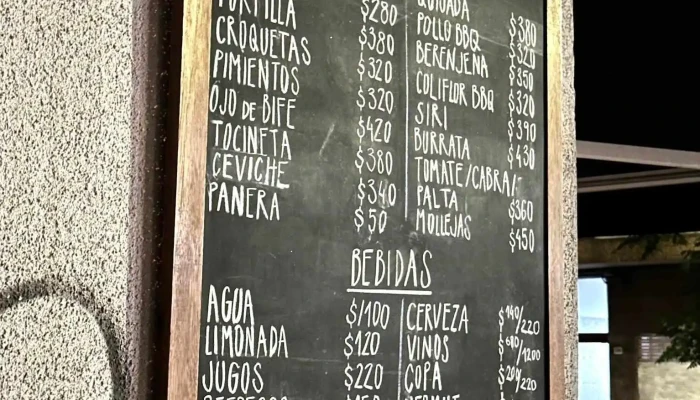 $280
TORTILLA $380
CROQUETAS $320
PIMIENTOS $320
OJO DE BIFE $420
TOCINETA $380
CEVICHE $340
PANERA $50
QUIJADA $380
POLLO BBQ $320
BERENJENA $350
COLIFLOR BBQ $320
SIRI $390
BURRATA $430
TOMATE/CABRA/
PALTA $360
MOLLEJAS $450
BEBIDAS
AGUA $/100
LIMONADA $120
JUGOS $220
CERVEZA $140/220
VINOS $600/1200
COPA $200/220